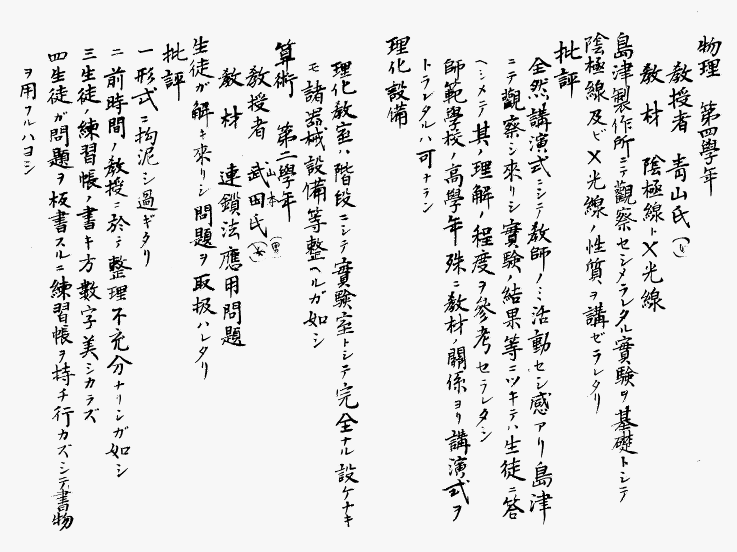 物理　第四學年
教授者　青山氏
教材　陰極線トX光線
島津製作所ニテ觀察セシメラレタル實驗ヲ基礎トシテ
陰極線及ビX光線ノ性質ヲ講ゼラレタリ
批評
全然講演式ニシテ教師ノミ活動セシ感アリ島津
ニテ觀察シ來リシ實驗ノ結果等ニツキテハ生徒ニ答
ヘシメテ其ノ理解ノ程度ヲ參考セラレタシ
師範學校ノ高學年殊ニ教材ノ關係ヨリ講演式ヲ
トラレタルハ可ナラン
理化設備
理化教室ハ階段ニシテ實驗室トシテ完全ナル設ケナキ
モ諸器械設備等整ヘルガ如シ
算術　第二學年
教授者　武田氏
山本
教材　連鎖法應用問題
生徒ガ解キ來リシ問題ヲ取扱ハレタリ
批評
一形式ニ拘泥シ過ギタリ
二前時間ノ教授ニ於テ整理不充分ナリシガ如シ
三生徒ノ練習帳ノ書キ方數字美シカラズ
四生徒ガ問題ヲ板書スルニ練習帳ヲ持チ行カズシテ書物
ヲ用フルハヨシ